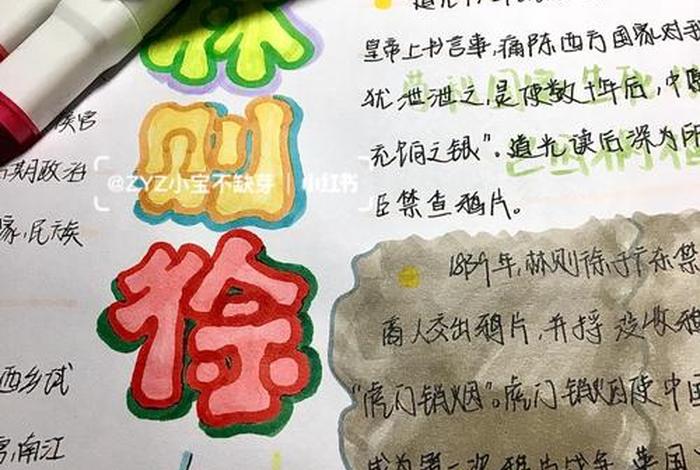 林
则
徐
侯官
期政治
家,民族
西乡试
官,南江
皇帝上书言事,痛陈西方国家对
犹泄泄之,是使数十年后,中
充饷之银"。道光读后深为所
臣禁查鸦片。
1839年,林则徐于广东禁
商人交出鸦片,并将没收鸦
"虎门销烟"。虎门销烟使中国
成为第一次鸦片战争 英国
苟利国家生死
@ZYZ小宝不缺芽 | 小红书